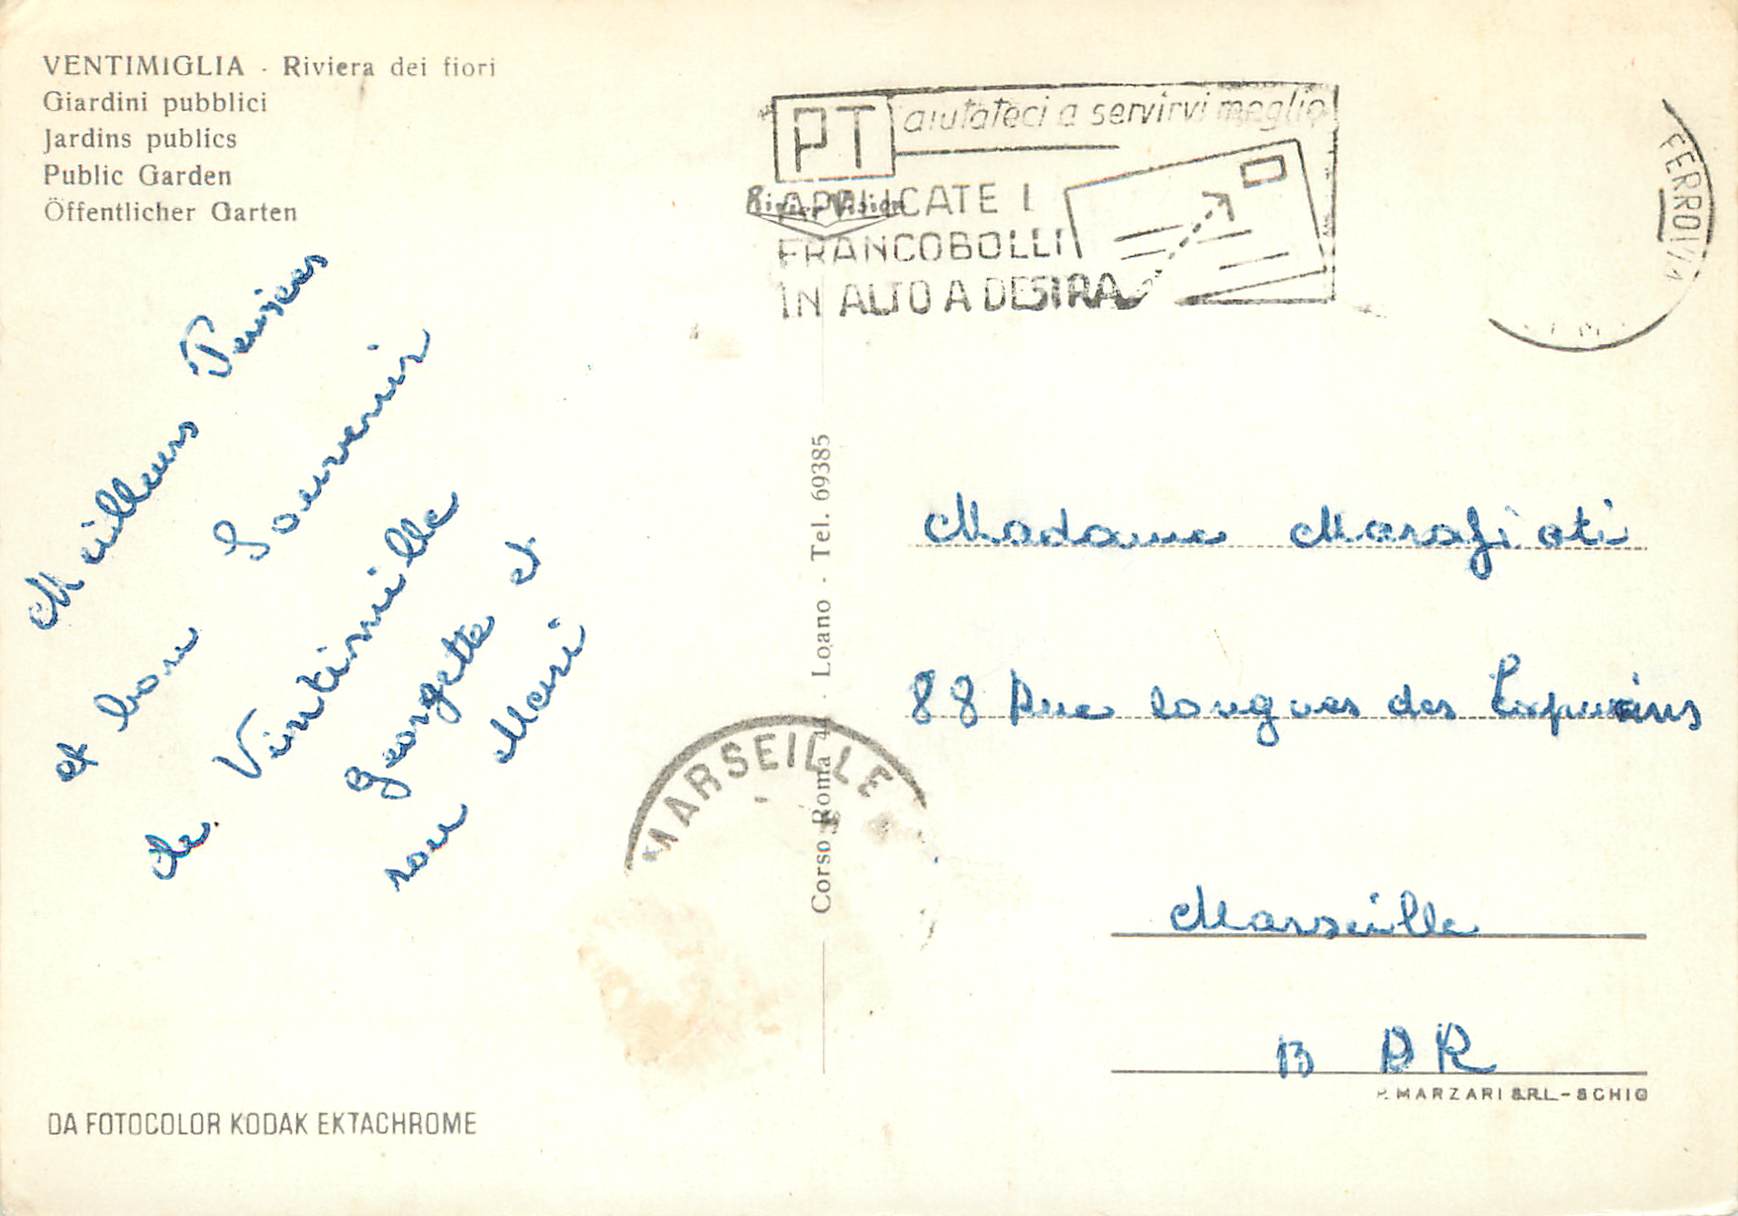 VENTIMIGLIA - Riviera dei fiori
Giardini pubblici
Jardins publics
Public Garden
Öffentlicher Garten
PT aiutateci a servirvi meglio
APPLICATE I
FRANCOBOLLI
IN ALTO A DESTRA
FERROVIA
Meilleurs Pensées
et bon Souvenir
de Vintimille
Georgette et
son Mari
MARSEILLE
Corso Roma - Loano - Tel. 69385
Madame Marafioti
88 Rue longues des Capucins
Marseille
B D R
P. MARZARI S.R.L. - SCHIO
DA FOTOCOLOR KODAK EKTACHROME